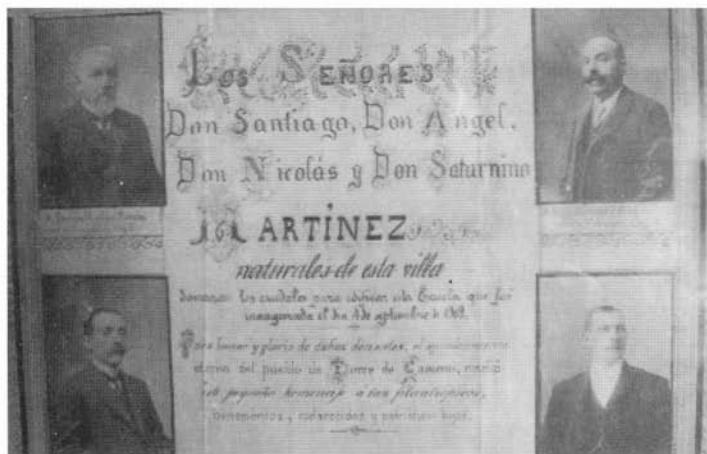 Los Señores
Don Santiago, Don Angel,
Don Nicolás y Don Saturnino
MARTÍNEZ
naturales de esta villa
donaron los caudales para edificar esta Escuela que fué
inaugurada el dia 4 de septiembre de
Para honor y gloria de dichos donantes, el ayuntamiento
del pueblo de Torre de Cameros,
este pequeño homenaje á tan filantrópicos,
beneméritos, esclarecidos y patrióticos hijos.